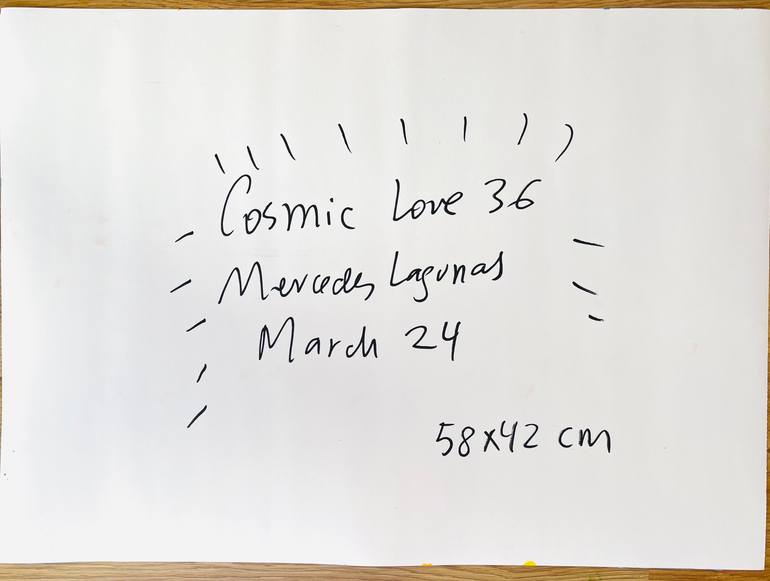 Cosmic Love 36
Mercedes Lagunas
March 24
58x42 cm